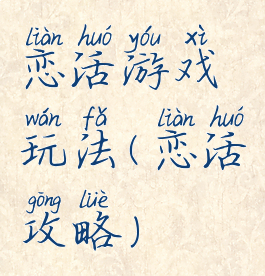 liàn huó yóu xì
恋活游戏
wán fǎ liàn huó
玩法(恋活
gōng lüè
攻略)